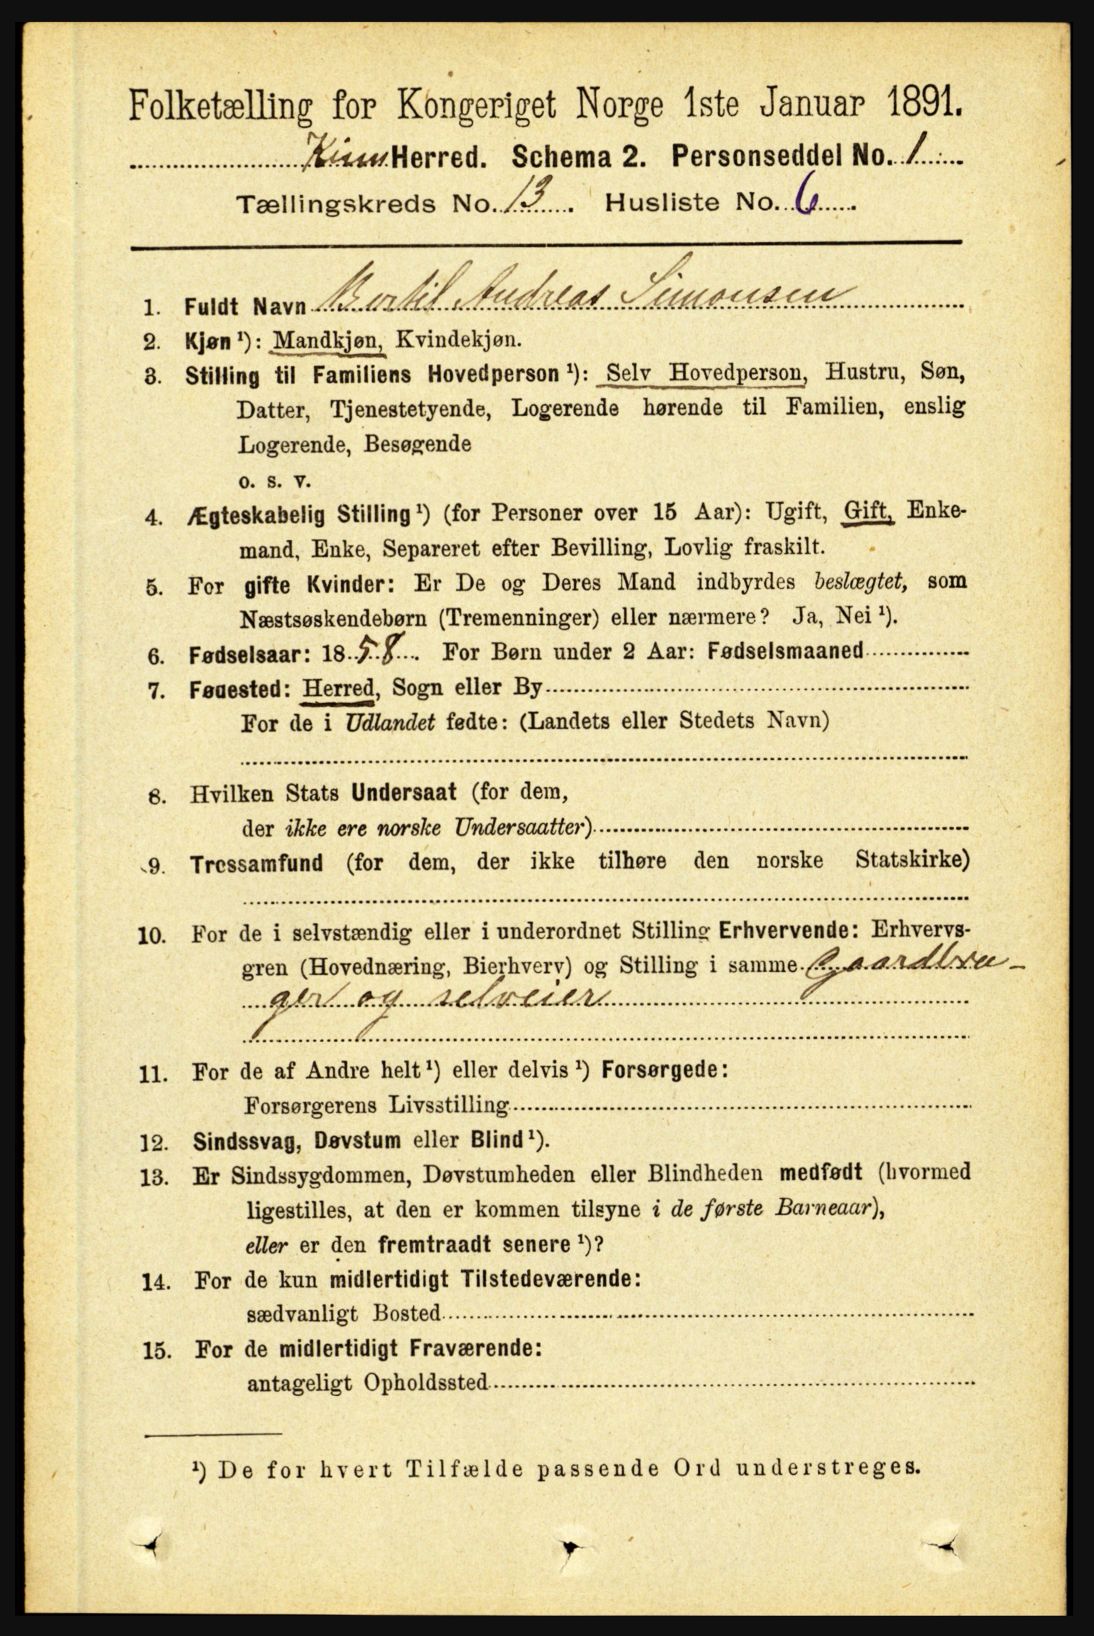 Folketælling for Kongeriget Norge 1ste Januar 1891.
Kinn Herred. Schema 2. Personseddel No. 1
Tællingskreds No. 13. Husliste No. 6.
1. Fuldt Navn Bertil Andreas Simonsen
2. Kjøn ¹): Mandkjøn, Kvindekjøn.
3. Stilling til Familiens Hovedperson ¹): Selv Hovedperson, Hustru, Søn,
Datter, Tjenestetyende, Logerende hørende til Familien, enslig
Logerende, Besøgende
o. s. v.
4. Ægteskabelig Stilling ¹) (for Personer over 15 Aar): Ugift, Gift, Enke-
mand, Enke, Separeret efter Bevilling, Lovlig fraskilt.
5. For gifte Kvinder: Er De og Deres Mand indbyrdes beslægtet, som
Næstsøskendebørn (Tremenninger) eller nærmere? Ja, Nei ¹).
6. Fødselsaar: 1858. For Børn under 2 Aar: Fødselsmaaned
7. Fødested: Herred, Sogn eller By
For de i Udlandet fødte: (Landets eller Stedets Navn)
8. Hvilken Stats Undersaat (for dem,
der ikke ere norske Undersaatter)
9. Trossamfund (for dem, der ikke tilhøre den norske Statskirke)
10. For de i selvstændig eller i underordnet Stilling Erhvervende: Erhvervs-
gren (Hovednæring, Bierhverv) og Stilling i samme Gaardbru-
ger og selveier
11. For de af Andre helt ¹) eller delvis ¹) Forsørgede:
Forsørgerens Livsstilling
12. Sindssvag, Døvstum eller Blind ¹).
13. Er Sindssygdommen, Døvstumheden eller Blindheden medfødt (hvormed
ligestilles, at den er kommen tilsyne i de første Barneaar),
eller er den fremtraadt senere ¹)?
14. For de kun midlertidigt Tilstedeværende:
sædvanligt Bosted
15. For de midlertidigt Fraværende:
antageligt Opholdssted
¹) De for hvert Tilfælde passende Ord understreges.